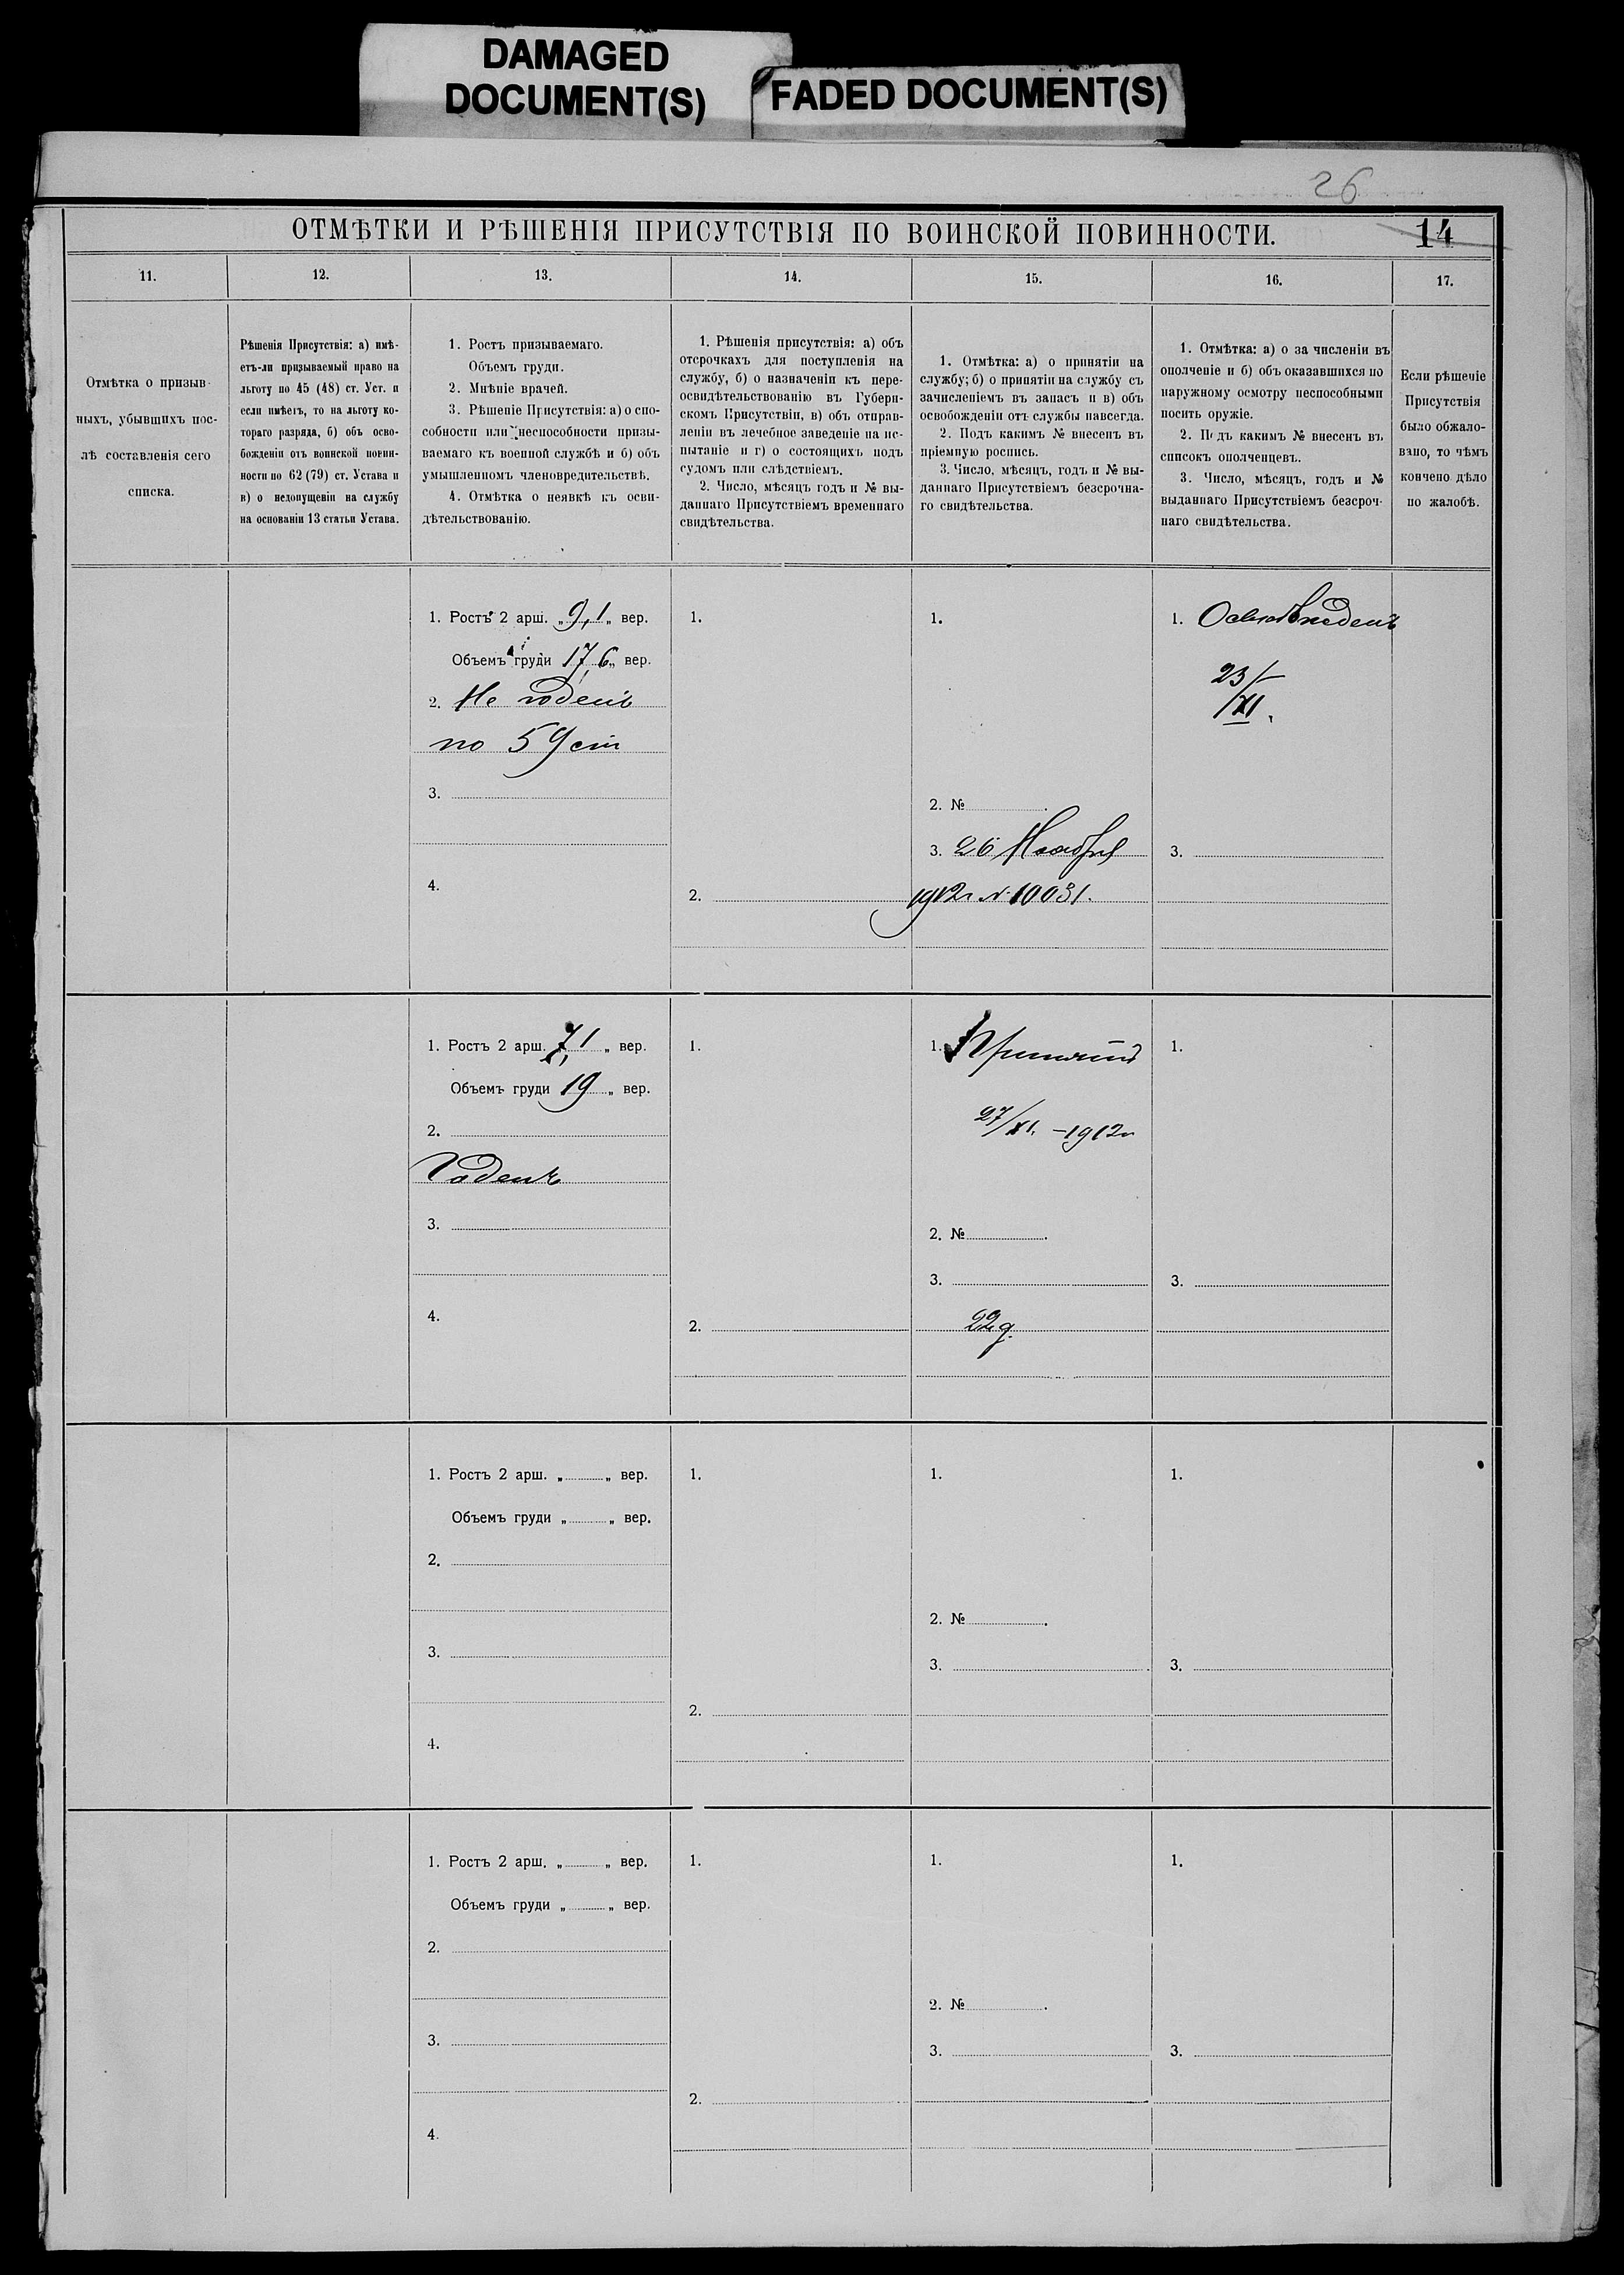 DAMAGED
DOCUMENT(S)
FADED DOCUMENT(S)
26
ОТМѢТКИ И РѢШЕНІЯ ПРИСУТСТВІЯ ПО ВОИНСКОЙ ПОВИННОСТИ.
14
11.
12.
13.
14.
15.
16.
17.
Отмѣтка о призыв-
ныхъ, убывшихъ пос-
лѣ составленія сего
списка.
Рѣшенія Присутствія: а) имѣ-
етъ-ли призываемый право на
льготу по 45 (48) ст. Уст. и
если имѣетъ, то на льготу ко-
тораго разряда, б) объ осво-
божденіи отъ воинской повин-
ности по 62 (79) ст. Устава и
в) о недопущеніи на службу
на основаніи 13 статьи Устава.
1. Ростъ призываемаго.
Объемъ груди.
2. Мнѣніе врачей.
3. Рѣшеніе Присутствія: а) о спо-
собности или неспособности призы-
ваемаго къ военной службѣ и б) объ
умышленномъ членовредительствѣ.
4. Отмѣтка о неявкѣ къ осви-
дѣтельствованію.
1. Рѣшенія присутствія: а) объ
отсрочкахъ для поступленія на
службу, б) о назначеніи къ пере-
освидѣтельствованію въ Губерн-
скомъ Присутствіи, в) объ отправ-
леніи въ лечебное заведеніе на ис-
пытаніе и г) о состоящихъ подъ
судомъ или слѣдствіемъ.
2. Число, мѣсяцъ годъ и № вы-
даннаго Присутствіемъ временнаго
свидѣтельства.
1. Отмѣтка: а) о принятіи на
службу; б) о принятіи на службу съ
зачисленіемъ въ запасъ и в) объ
освобожденіи отъ службы навсегда.
2. Подъ какимъ № внесенъ въ
пріемную роспись.
3. Число, мѣсяцъ, годъ и № вы-
даннаго Присутствіемъ безсрочна-
го свидѣтельства.
1. Отмѣтка: а) о за численіи въ
ополченіе и б) объ оказавшихся по
наружному осмотру неспособными
носить оружіе.
2. Подъ какимъ № внесенъ въ
списокъ ополченцевъ.
3. Число, мѣсяцъ, годъ и №
выданнаго Присутствіемъ безсроч-
наго свидѣтельства.
Если рѣшеніе
Присутствія
было обжало-
вано, то чѣмъ
кончено дѣло
по жалобѣ.
1. Ростъ 2 арш. „ 9,1 „ вер.
Объемъ груди 17,6 „ вер.
2. Не годенъ
по 59 ст
3.
4.
1.
2.
1.
2. №
3. 26 Ноября
1912г. № 10031.
1. Освобожденъ
23/XI.
3.
1. Ростъ 2 арш. 7,1 „ вер.
Объемъ груди 19 „ вер.
2.
Годенъ
3.
4.
1.
2.
1. Принятъ
27/XI. – 1912г
2. №
3.
1.
3.
1. Ростъ 2 арш. „ „ вер.
Объемъ груди „ „ вер.
2.
3.
4.
1.
2.
1.
2. №
3.
1.
3.
1. Ростъ 2 арш. „ „ вер.
Объемъ груди „ „ вер.
2.
3.
4.
1.
2.
1.
2. №
3.
1.
3.